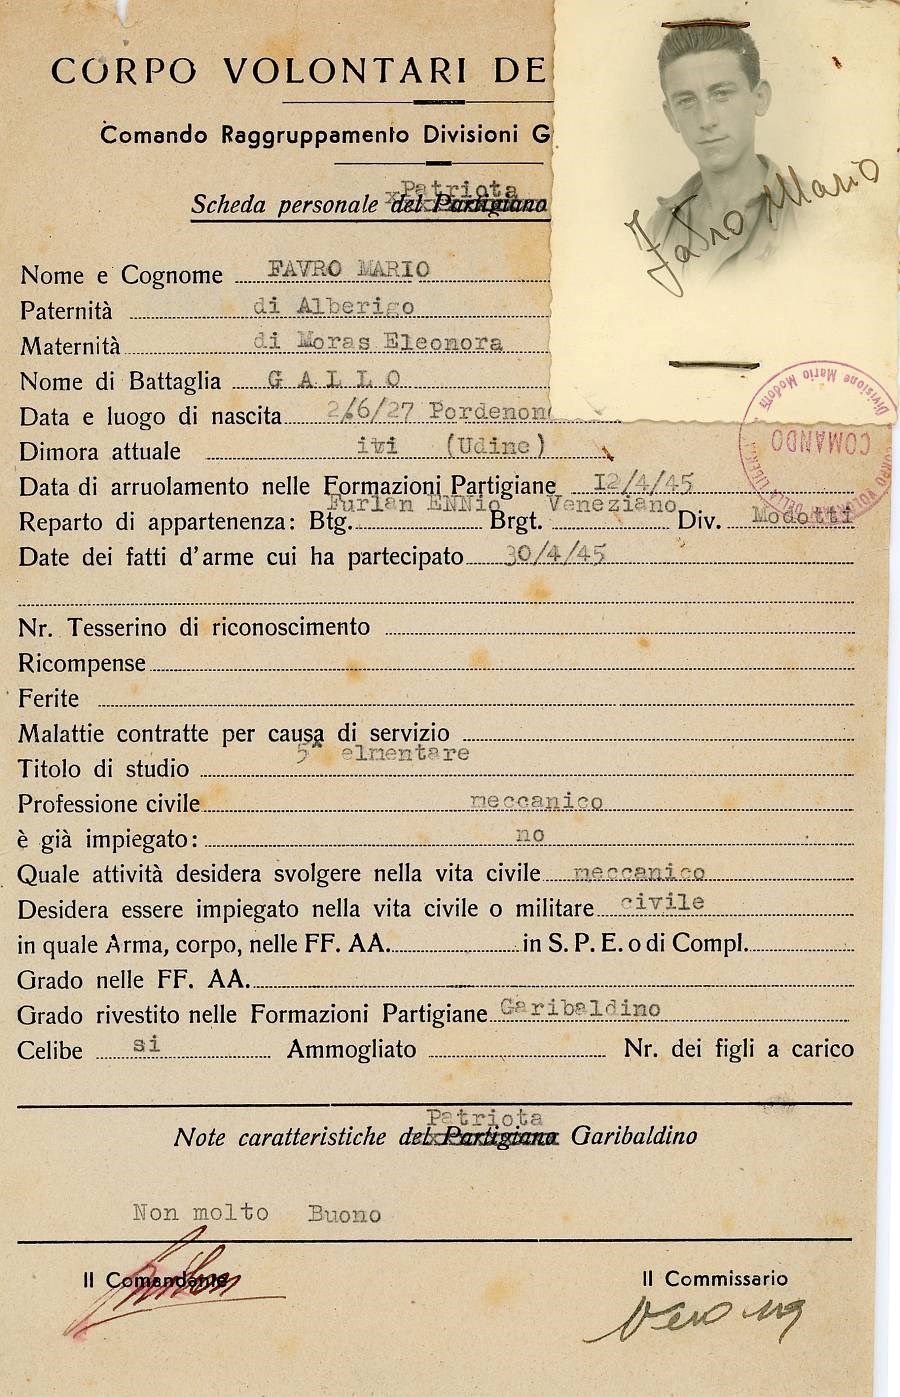 CORPO VOLONTARI DE
Comando Raggruppamento Divisioni G
Patriota
Scheda personale del Partigiano
Favro Mario
Nome e Cognome FAVRO MARIO
Paternità di Alberigo
Maternità di Moras Eleonora
Nome di Battaglia G A L L O
Data e luogo di nascita 2/6/27 Pordenon
Dimora attuale ivi (Udine)
Data di arruolamento nelle Formazioni Partigiane I2/4/45
Furlan ENNio Veneziano
Reparto di appartenenza: Btg. Brgt. Div. Modotti
Divisione Mario Modotti
COMANDO
Date dei fatti d'arme cui ha partecipato 30/4/45
Nr. Tesserino di riconoscimento
Ricompense
Ferite
Malattie contratte per causa di servizio
5^ elmentare
Titolo di studio
Professione civile meccanico
è già impiegato: no
Quale attività desidera svolgere nella vita civile meccanico
Desidera essere impiegato nella vita civile o militare civile
in quale Arma, corpo, nelle FF. AA. in S. P. E. o di Compl.
Grado nelle FF. AA.
Grado rivestito nelle Formazioni Partigiane Garibaldino
Celibe si Ammogliato Nr. dei figli a carico
Patriota
Note caratteristiche del Partigiano Garibaldino
Non molto Buono
Il Comandante Il Commissario